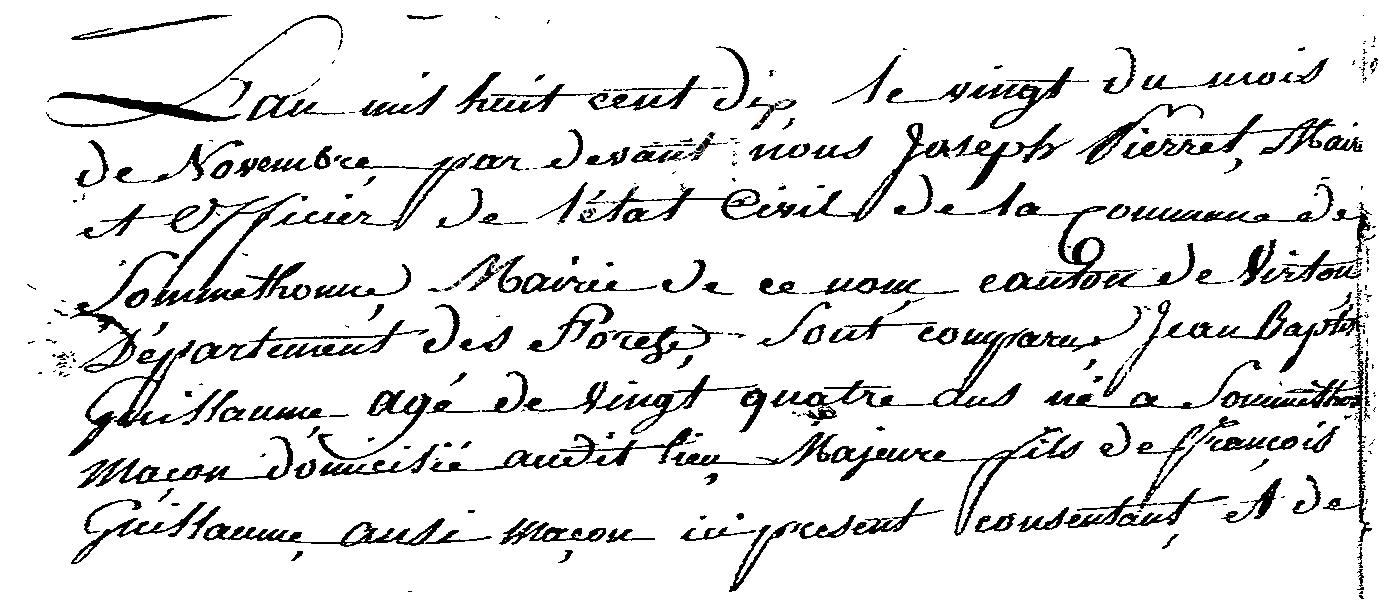 L'an mil huit cent dix, le vingt du mois
de Novembre, par devant nous Joseph Pierret, Maire
et Officier de l'état Civil de la Commune de
Sommethonne Mairie de ce nom, canton de Virton
Département des Forets, sont comparus Jean Baptiste
Guillaume, agé de vingt quatre ans né a Sommethonne
maçon domicilié audit lieu, Majeure fils de François
Guillaume, ausi maçon ici present consentant, et de